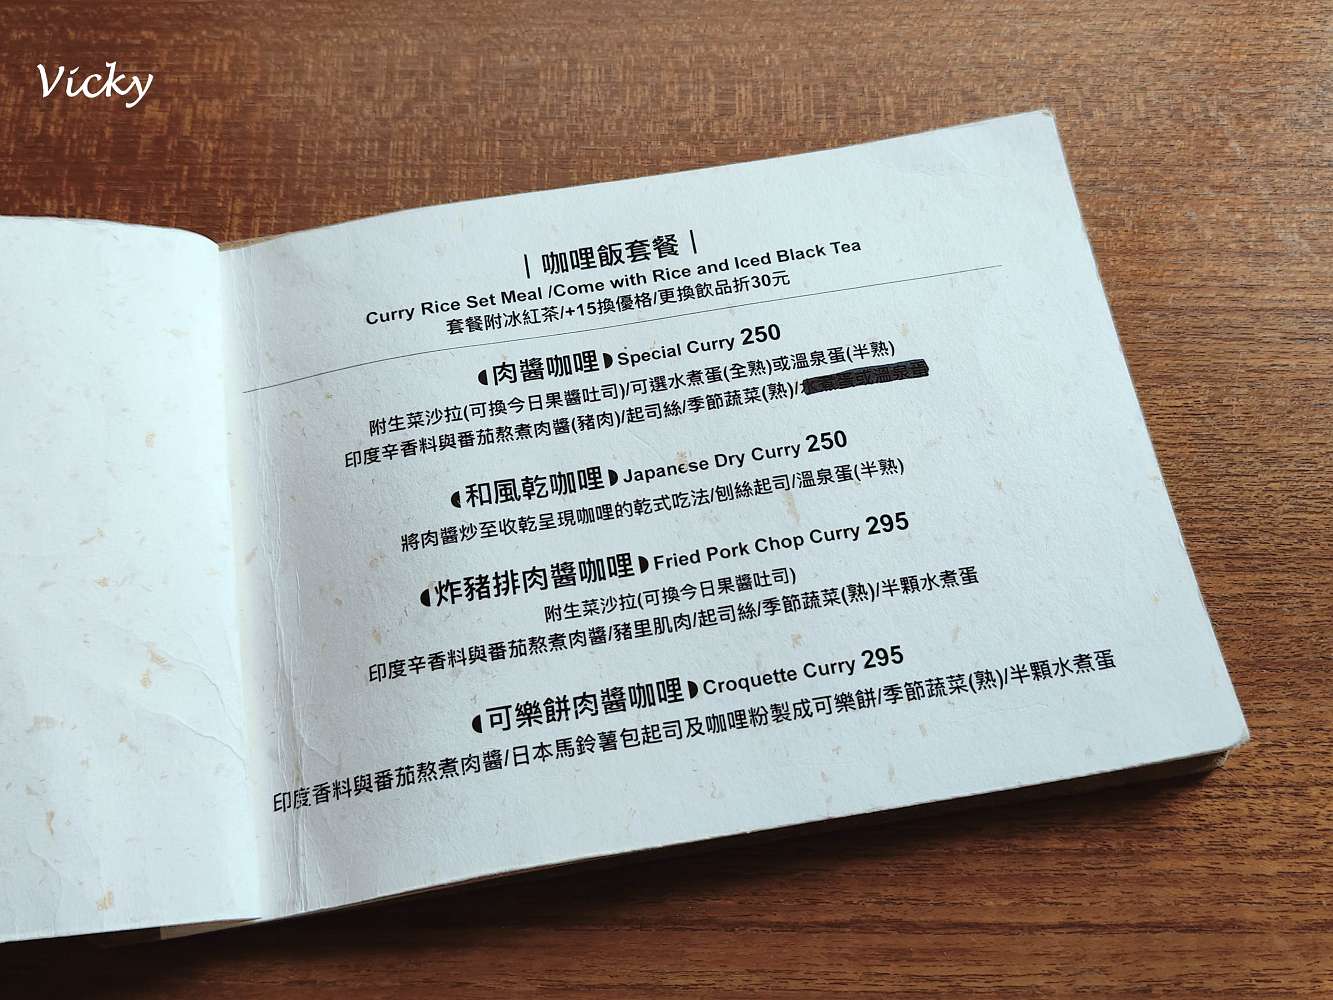 Vicky
|咖哩飯套餐|
Curry Rice Set Meal /Come with Rice and Iced Black Tea
套餐附冰紅茶/+15換優格/更換飲品折30元
肉醬咖哩 Special Curry 250
附生菜沙拉(可換今日果醬吐司)/可選水煮蛋(全熟)或溫泉蛋(半熟)
印度辛香料與番茄熬煮肉醬(豬肉)/起司絲/季節蔬菜(熟)/水煮蛋或溫泉蛋
和風乾咖哩 Japanese Dry Curry 250
將肉醬炒至收乾呈現咖哩的乾式吃法/刨絲起司/溫泉蛋(半熟)
炸豬排肉醬咖哩 Fried Pork Chop Curry 295
附生菜沙拉(可換今日果醬吐司)
印度辛香料與番茄熬煮肉醬/豬里肌肉/起司絲/季節蔬菜(熟)/半顆水煮蛋
可樂餅肉醬咖哩 Croquette Curry 295
印度香料與番茄熬煮肉醬/日本馬鈴薯包起司及咖哩粉製成可樂餅/季節蔬菜(熟)/半顆水煮蛋